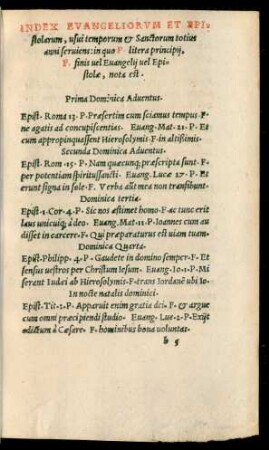 INDEX EVANGELIORVM ET EPI-
stolarum, usui temporum & Sanctorum totius
anni seruiens: in quo P. litera principij,
F. finis uel Euangelij uel Epi-
stolæ, nota est.
Prima Dominica Aduentus.
Epist. Roma 13. P. Præsertim cum sciamus tempus. F.
ne agatis ad concupiscentias. Euang. Mat. 21. P. Et
cum appropinquassent Hierosolymis. F. in altissimis.
Secunda Dominica Aduentus.
Epist. Rom. 15. P. Nam quæcunq; præscripta sunt. F.
per potentiam spiritus sancti. Euang. Luce 27. P. Et
erunt signa in sole. F. Verba autē mea non transibunt.
Dominica tertia.
Epist. 1. Cor. 4. P. Sic nos æstimet homo. F. ac tunc erit
laus unicuiq; à deo. Euang. Mat. 11. P. Ioannes cum au
disset in carcere. F. Qui præparaturus est uiam tuam.
Dominica Quarta.
Epist. Philipp. 4. P. Gaudete in domino semper. F. Et
sensus uestros per Christum Iesum. Euang. Io. 1. P. Mi
serant Iudæi ab Hierosolymis. F. trans Iordanē ubi Io.
In nocte natalis dominici.
Epist. Tit. 2. P. Apparuit enim gratia dei. F. & argue
cum omni præcipiendi studio. Euang. Luc. 2. P. Exijt
edictum à Cæsare. F. hominibus bona uoluntas.
b 5